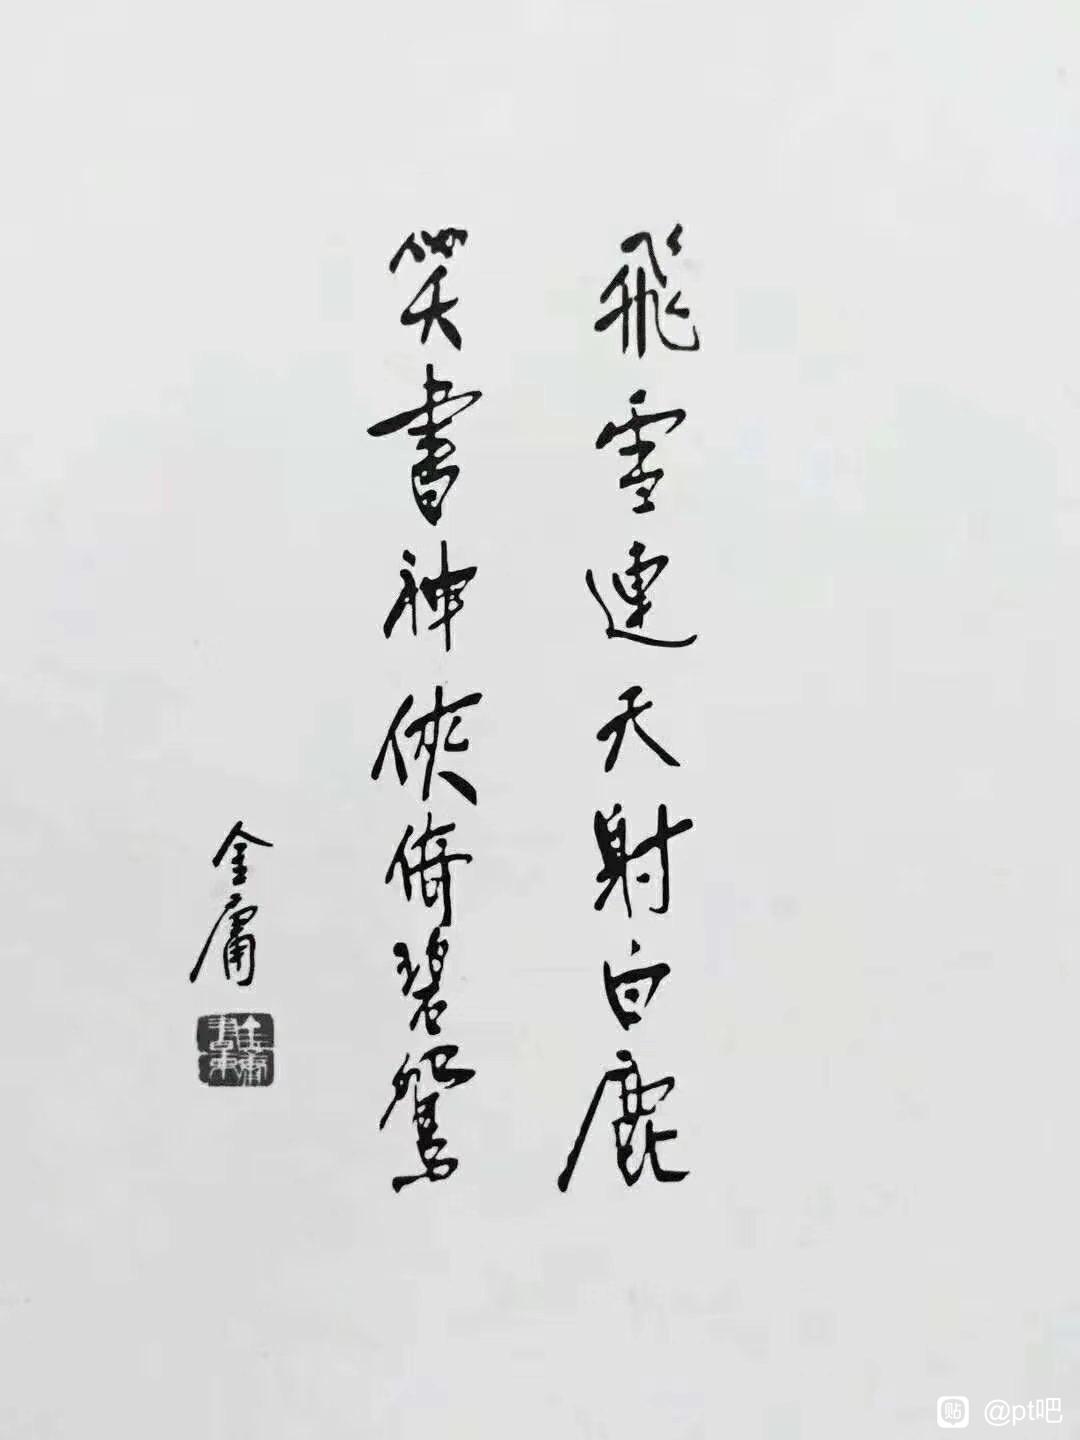 飛雪連天射白鹿
笑書神俠倚碧鴛
金庸
貼 @pt吧